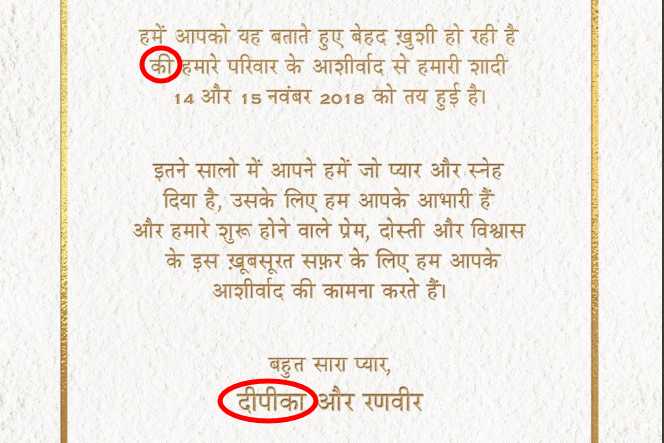 हमें आपको यह बताते हुए बेहद ख़ुशी हो रही है
की हमारे परिवार के आशीर्वाद से हमारी शादी
14 और 15 नवंबर 2018 को तय हुई है।
इतने सालो में आपने हमें जो प्यार और स्नेह
दिया है, उसके लिए हम आपके आभारी हैं
और हमारे शुरू होने वाले प्रेम, दोस्ती और विश्वास
के इस ख़ूबसूरत सफ़र के लिए हम आपके
आशीर्वाद की कामना करते हैं।
बहुत सारा प्यार,
दीपीका और रणवीर